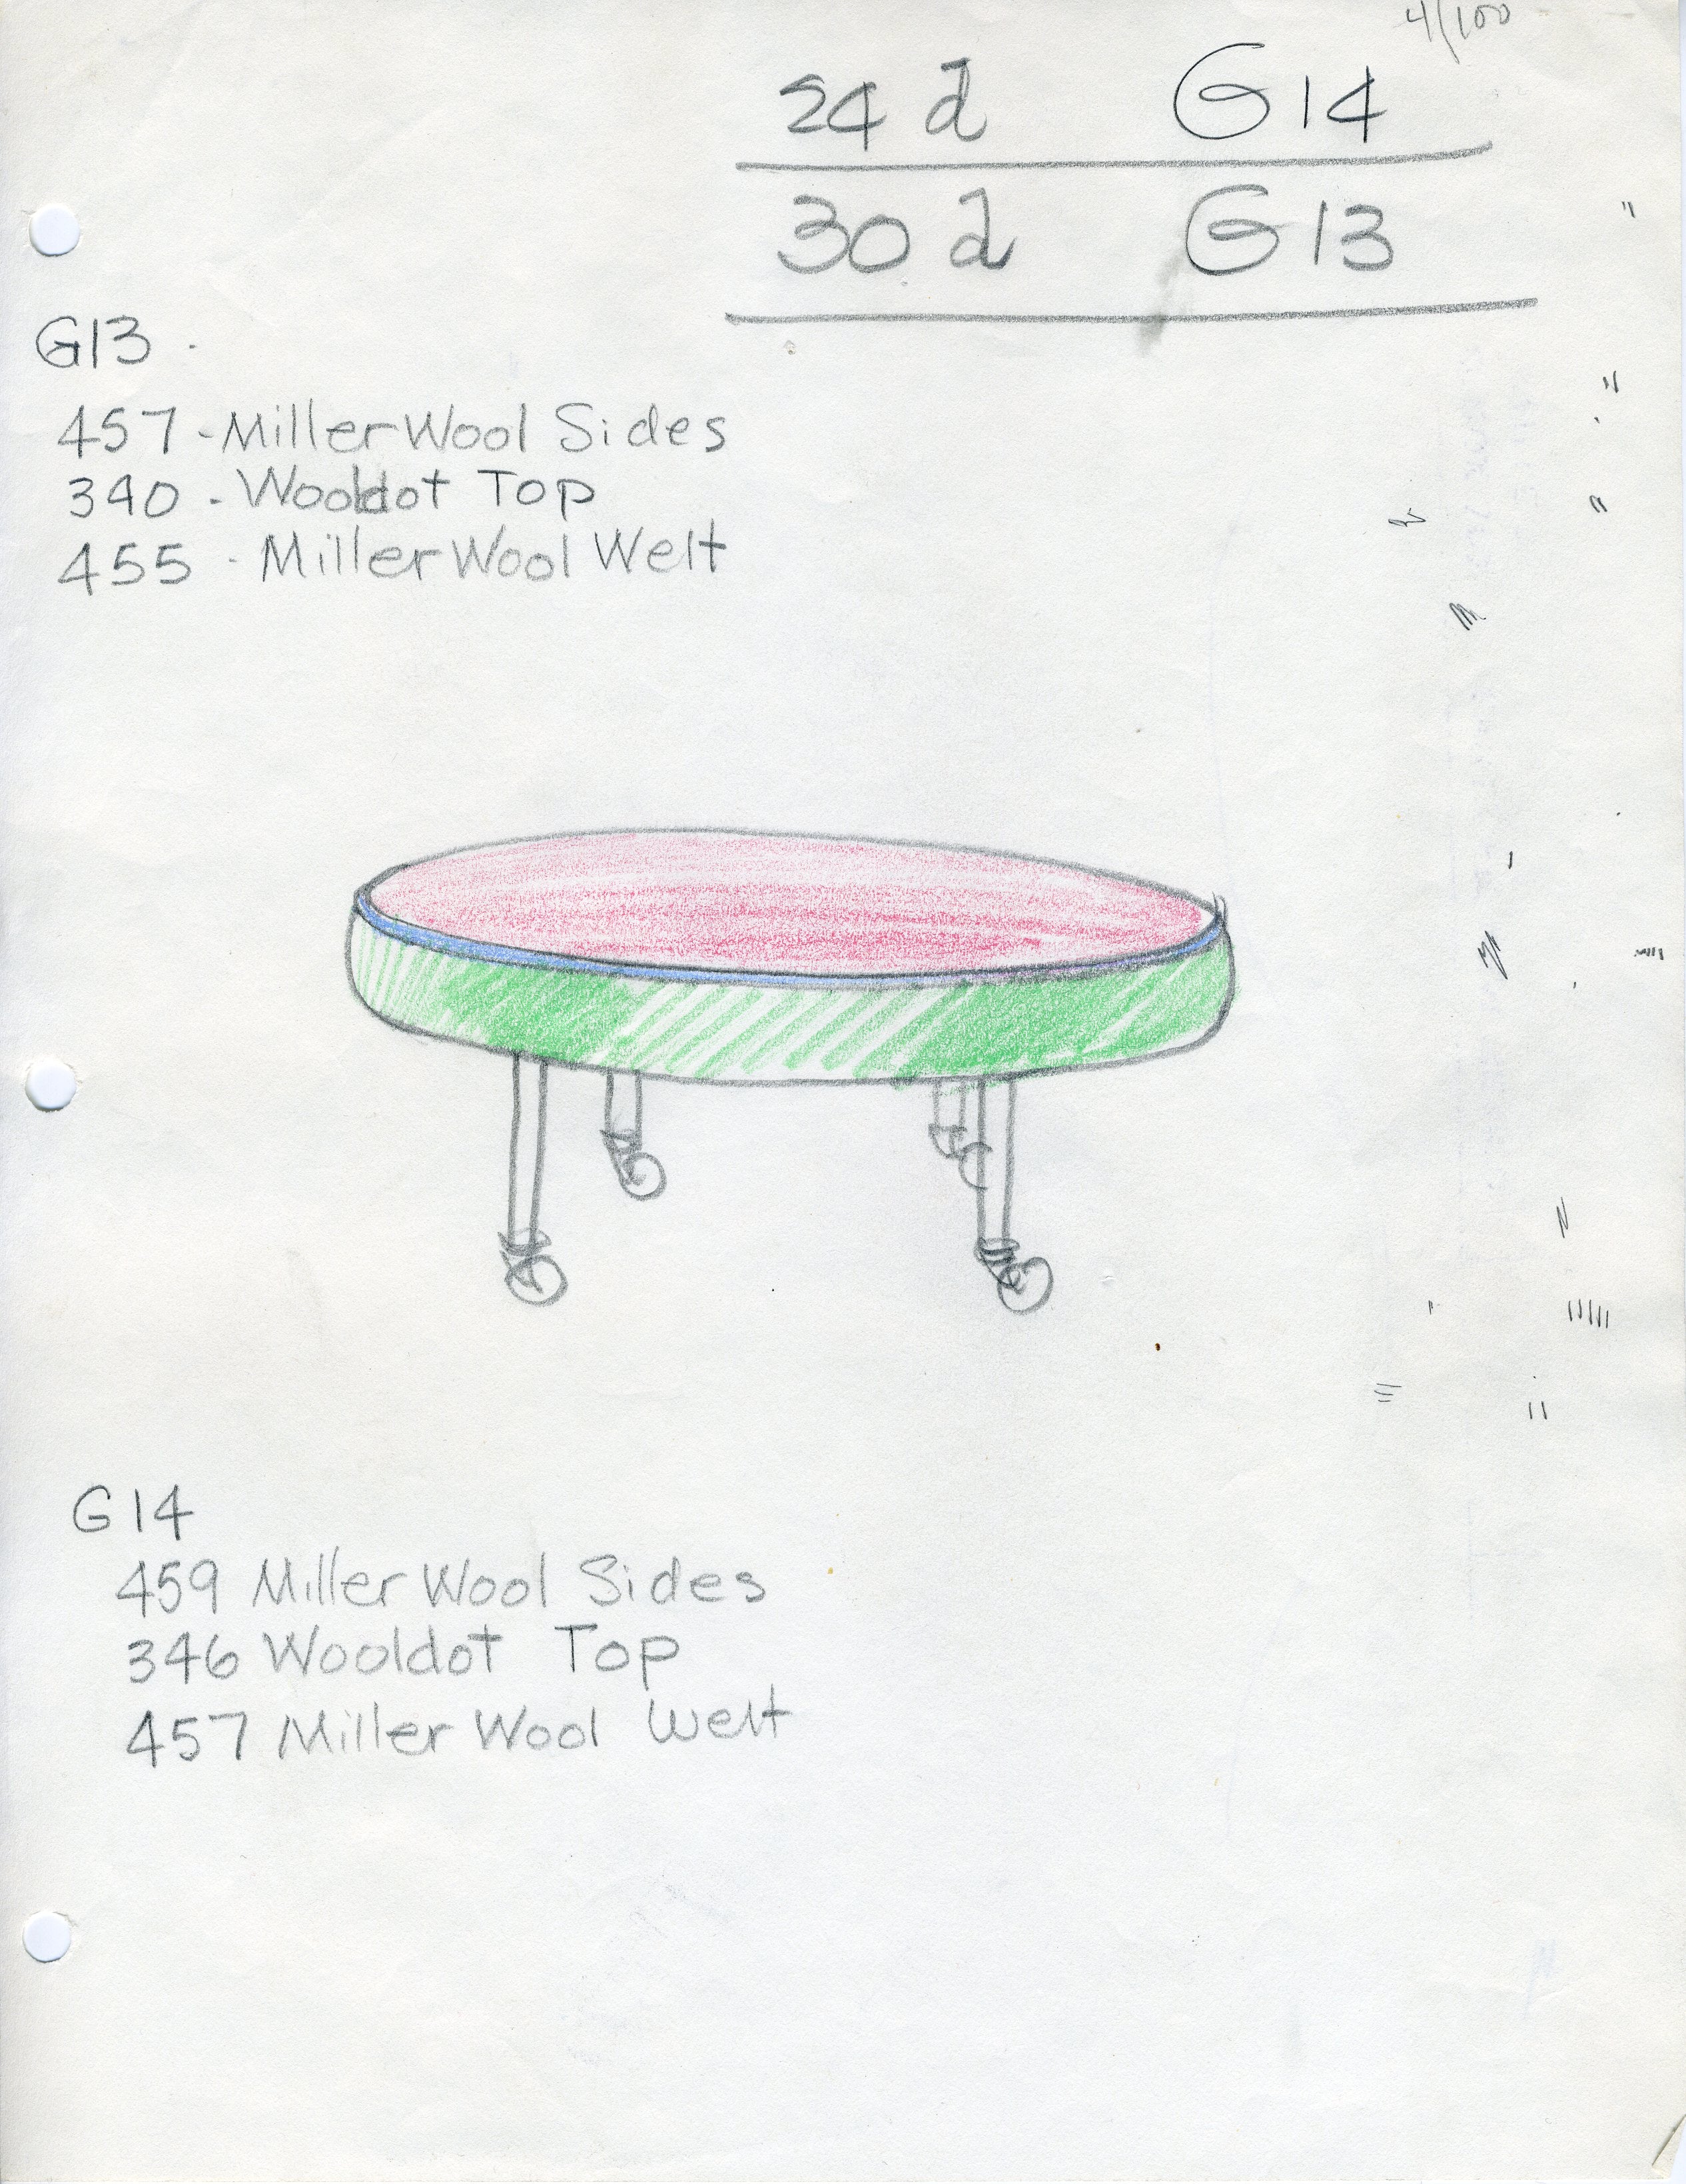 4/100
24 d G14
30 d G13
G13 -
457 - Miller Wool Sides
340 - Wooldot Top
455 - Miller Wool Welt
G14
459 Miller Wool Sides
346 Wooldot Top
457 Miller Wool Welt